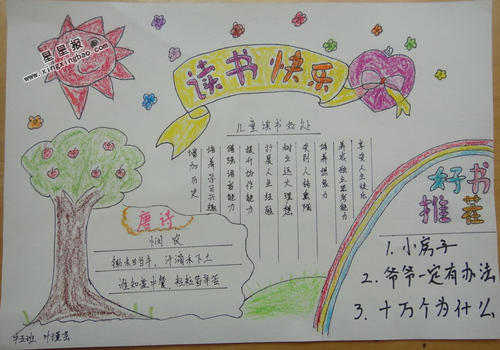 星星报
www.xingxingbao.com
读书快乐
儿童读书好处
增加历史
培养学习兴趣
增强语言能力
提升协作能力
扩展人生经验
树立远大理想
受到人格熏陶
培养想象力
养成独立思考能力
享受人生快乐
唐诗
悯农
锄禾日当午，汗滴禾下土
谁知盘中餐，粒粒皆辛苦
好书
推荐
1.小房子
2.爷爷一定有办法
3.十万个为什么
中五班